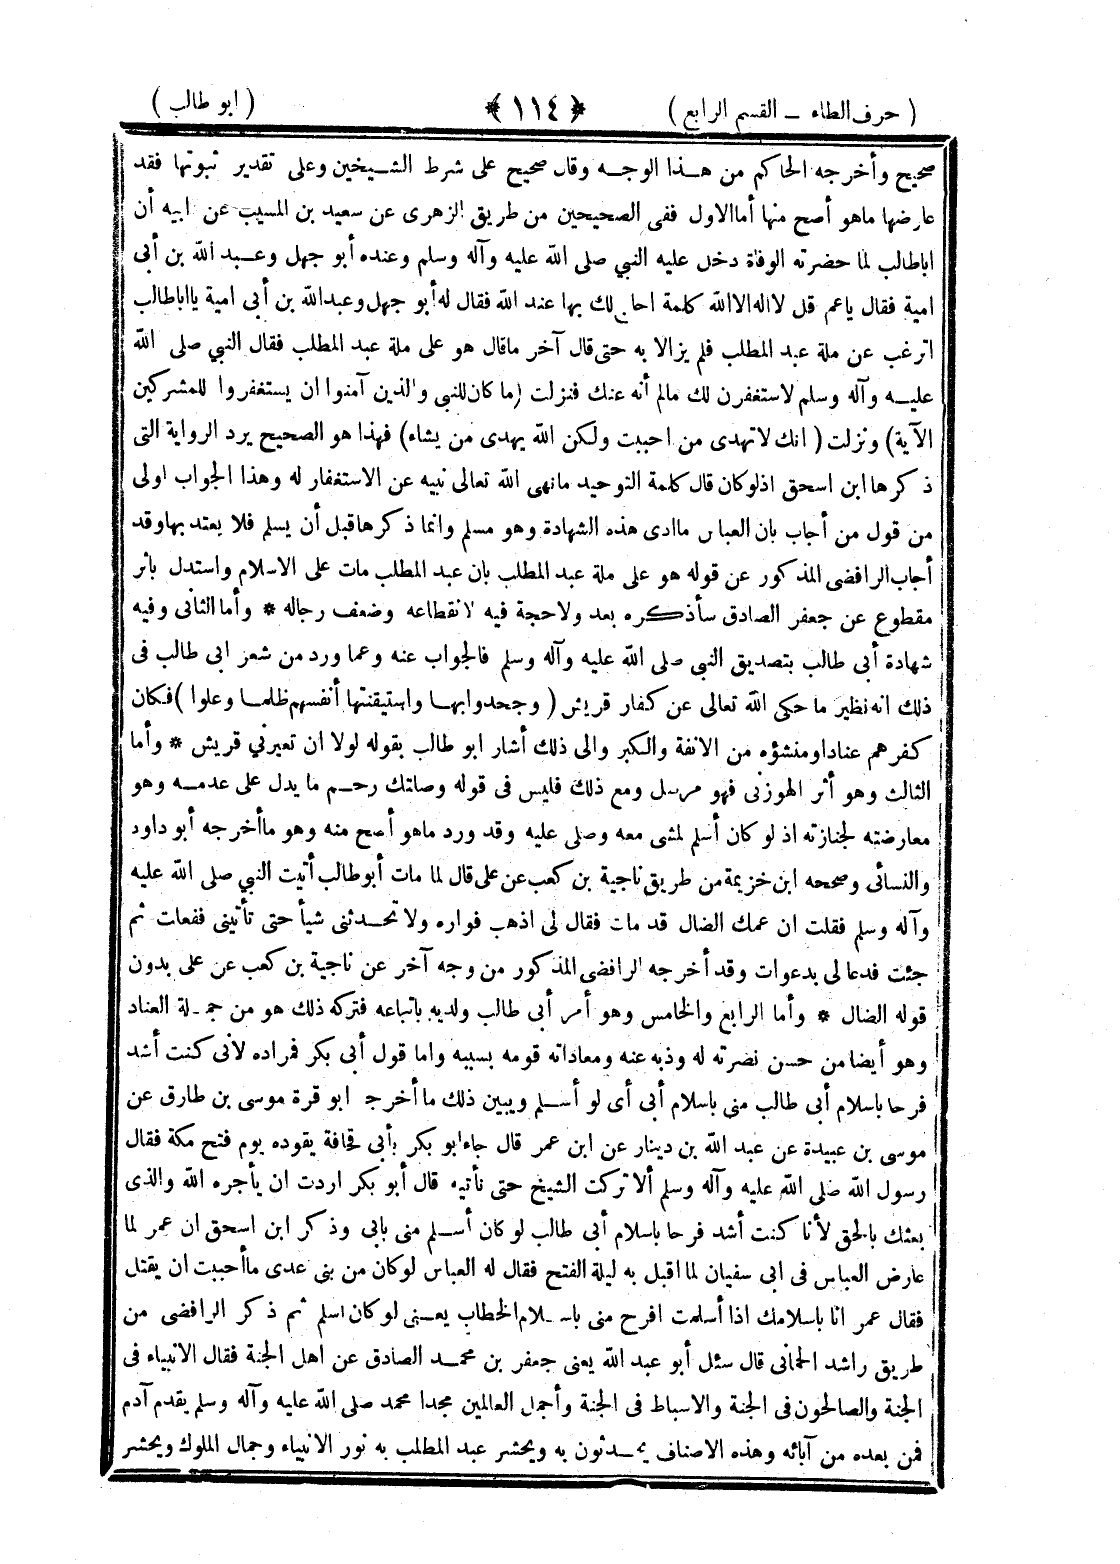 ( حرف الطاء – القسم الرابع ) ﴿ ١١٤ ﴾ ( ابو طالب )
صحيح وأخرجه الحاكم من هذا الوجه وقال صحيح على شرط الشيخين وعلى تقدير ثبوتها فقد
عارضها ماهو أصح منها أماالاول ففى الصحيحين من طريق الزهرى عن سعيد بن المسيب عن ابيه أن
اباطالب لما حضرته الوفاة دخل عليه النبي صلى الله عليه وآله وسلم وعنده أبو جهل وعبد الله بن أبى
امية فقال ياعم قل لااله الاالله كلمة احاج لك بها عند الله فقال له أبو جهل وعبدالله بن أبى امية يااباطالب
اترغب عن ملة عبد المطلب فلم يزالا به حتى قال آخر ماقال هو على ملة عبد المطلب فقال النبي صلى الله
عليه وآله وسلم لاستغفرن لك مالم أنه عنك فنزلت (ما كان للنبى والذين آمنوا ان يستغفروا للمشركين
الآية) ونزلت ( انك لاتهدى من احببت ولكن الله يهدى من يشاء) فهذا هو الصحيح يرد الرواية التى
ذكرها ابن اسحق اذلوكان قال كلمة التوحيد مانهى الله تعالى نبيه عن الاستغفار له وهذا الجواب اولى
من قول من أجاب بان العباس ماادى هذه الشهادة وهو مسلم وانما ذكرها قبل أن يسلم فلا يعتد بها وقد
أجاب الرافضى المذكور عن قوله هو على ملة عبد المطلب بان عبد المطلب مات على الاسلام واستدل باثر
مقطوع عن جعفر الصادق سأذكره بعد ولاحجة فيه لانقطاعه وضعف رجاله * وأما الثانى وفيه
شهادة أبى طالب بتصديق النبي صلى الله عليه وآله وسلم فالجواب عنه وعما ورد من شعر ابى طالب فى
ذلك انه نظير ما حكى الله تعالى عن كفار قريش ( وجحدوا بها واستيقنتها أنفسهم ظلما وعلوا ) فكان
كفرهم عنادا ومنشؤه من الانفة والكبر والى ذلك أشار ابو طالب بقوله لولا ان تعيرني قريش * وأما
الثالث وهو أثر الهوزنى فهو مرسل ومع ذلك فليس فى قوله وصلتك رحم ما يدل على عدمه وهو
معارضته لجنازته اذ لو كان أسلم لمشى معه وصلى عليه وقد ورد ماهو أصح منه وهو ماأخرجه أبو داود
والنسائى وصححه ابن خزيمة من طريق ناجية بن كعب عن على قال لما مات أبوطالب أتيت النبي صلى الله عليه
وآله وسلم فقلت ان عمك الضال قد مات فقال لى اذهب فواره ولا تحدثنى شيأ حتى تأتينى ففعلت ثم
جئت فدعا لى بدعوات وقد أخرجه الرافضى المذكور من وجه آخر عن ناجية بن كعب عن على بدون
قوله الضال * وأما الرابع والخامس وهو أمر أبى طالب ولديه باتباعه فتركه ذلك هو من جملة العناد
وهو أيضا من حسن نصرته له وذبه عنه ومعاداته قومه بسببه واما قول أبى بكر فمراده لأنى كنت أشد
فرحا باسلام أبى طالب منى باسلام أبى أى لو أسلم ويبين ذلك ماأخرج ابو قرة موسى بن طارق عن
موسى بن عبيدة عن عبد الله بن دينار عن ابن عمر قال جاء ابو بكر بأبى قحافة يقوده يوم فتح مكة فقال
رسول الله صلى الله عليه وآله وسلم ألا تركت الشيخ حتى نأتيه قال أبو بكر اردت ان يأجره الله والذى
بعثك بالحق لأنا كنت أشد فرحا باسلام أبى طالب لو كان أسلم منى بابى وذكر ابن اسحق ان عمر لما
عارض العباس فى ابى سفيان لما اقبل به ليلة الفتح فقال له العباس لوكان من بنى عدى ماأحببت ان يقتل
فقال عمر انا باسلامك اذا أسلمت افرح منى باسلام الخطاب يعنى لوكان اسلم ثم ذكر الرافضى من
طريق راشد الحمانى قال سئل أبو عبد الله يعنى جعفر بن محمد الصادق عن اهل الجنة فقال الانبياء فى
الجنة والصالحون فى الجنة والاسباط فى الجنة وأجمل العالمين مجدا محمد صلى الله عليه وآله وسلم يقدم آدم
فمن بعده من آبائه وهذه الاصناف يحدثون به ويحشر عبد المطلب به نور الانبياء وجمال الملوك ويحشر